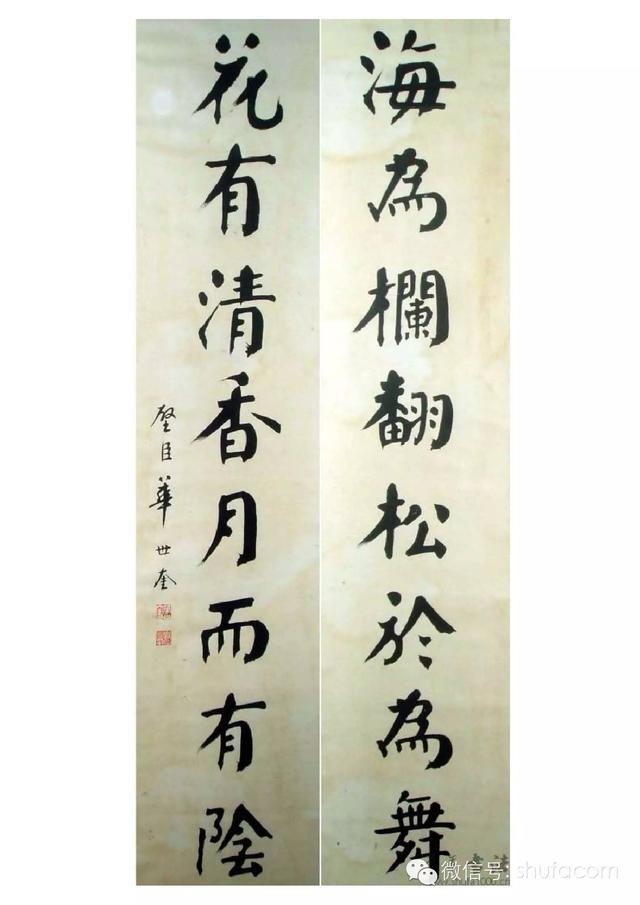 海為欄翻松於為舞
花有清香月而有陰
璧臣華世奎
微信号: shufacom